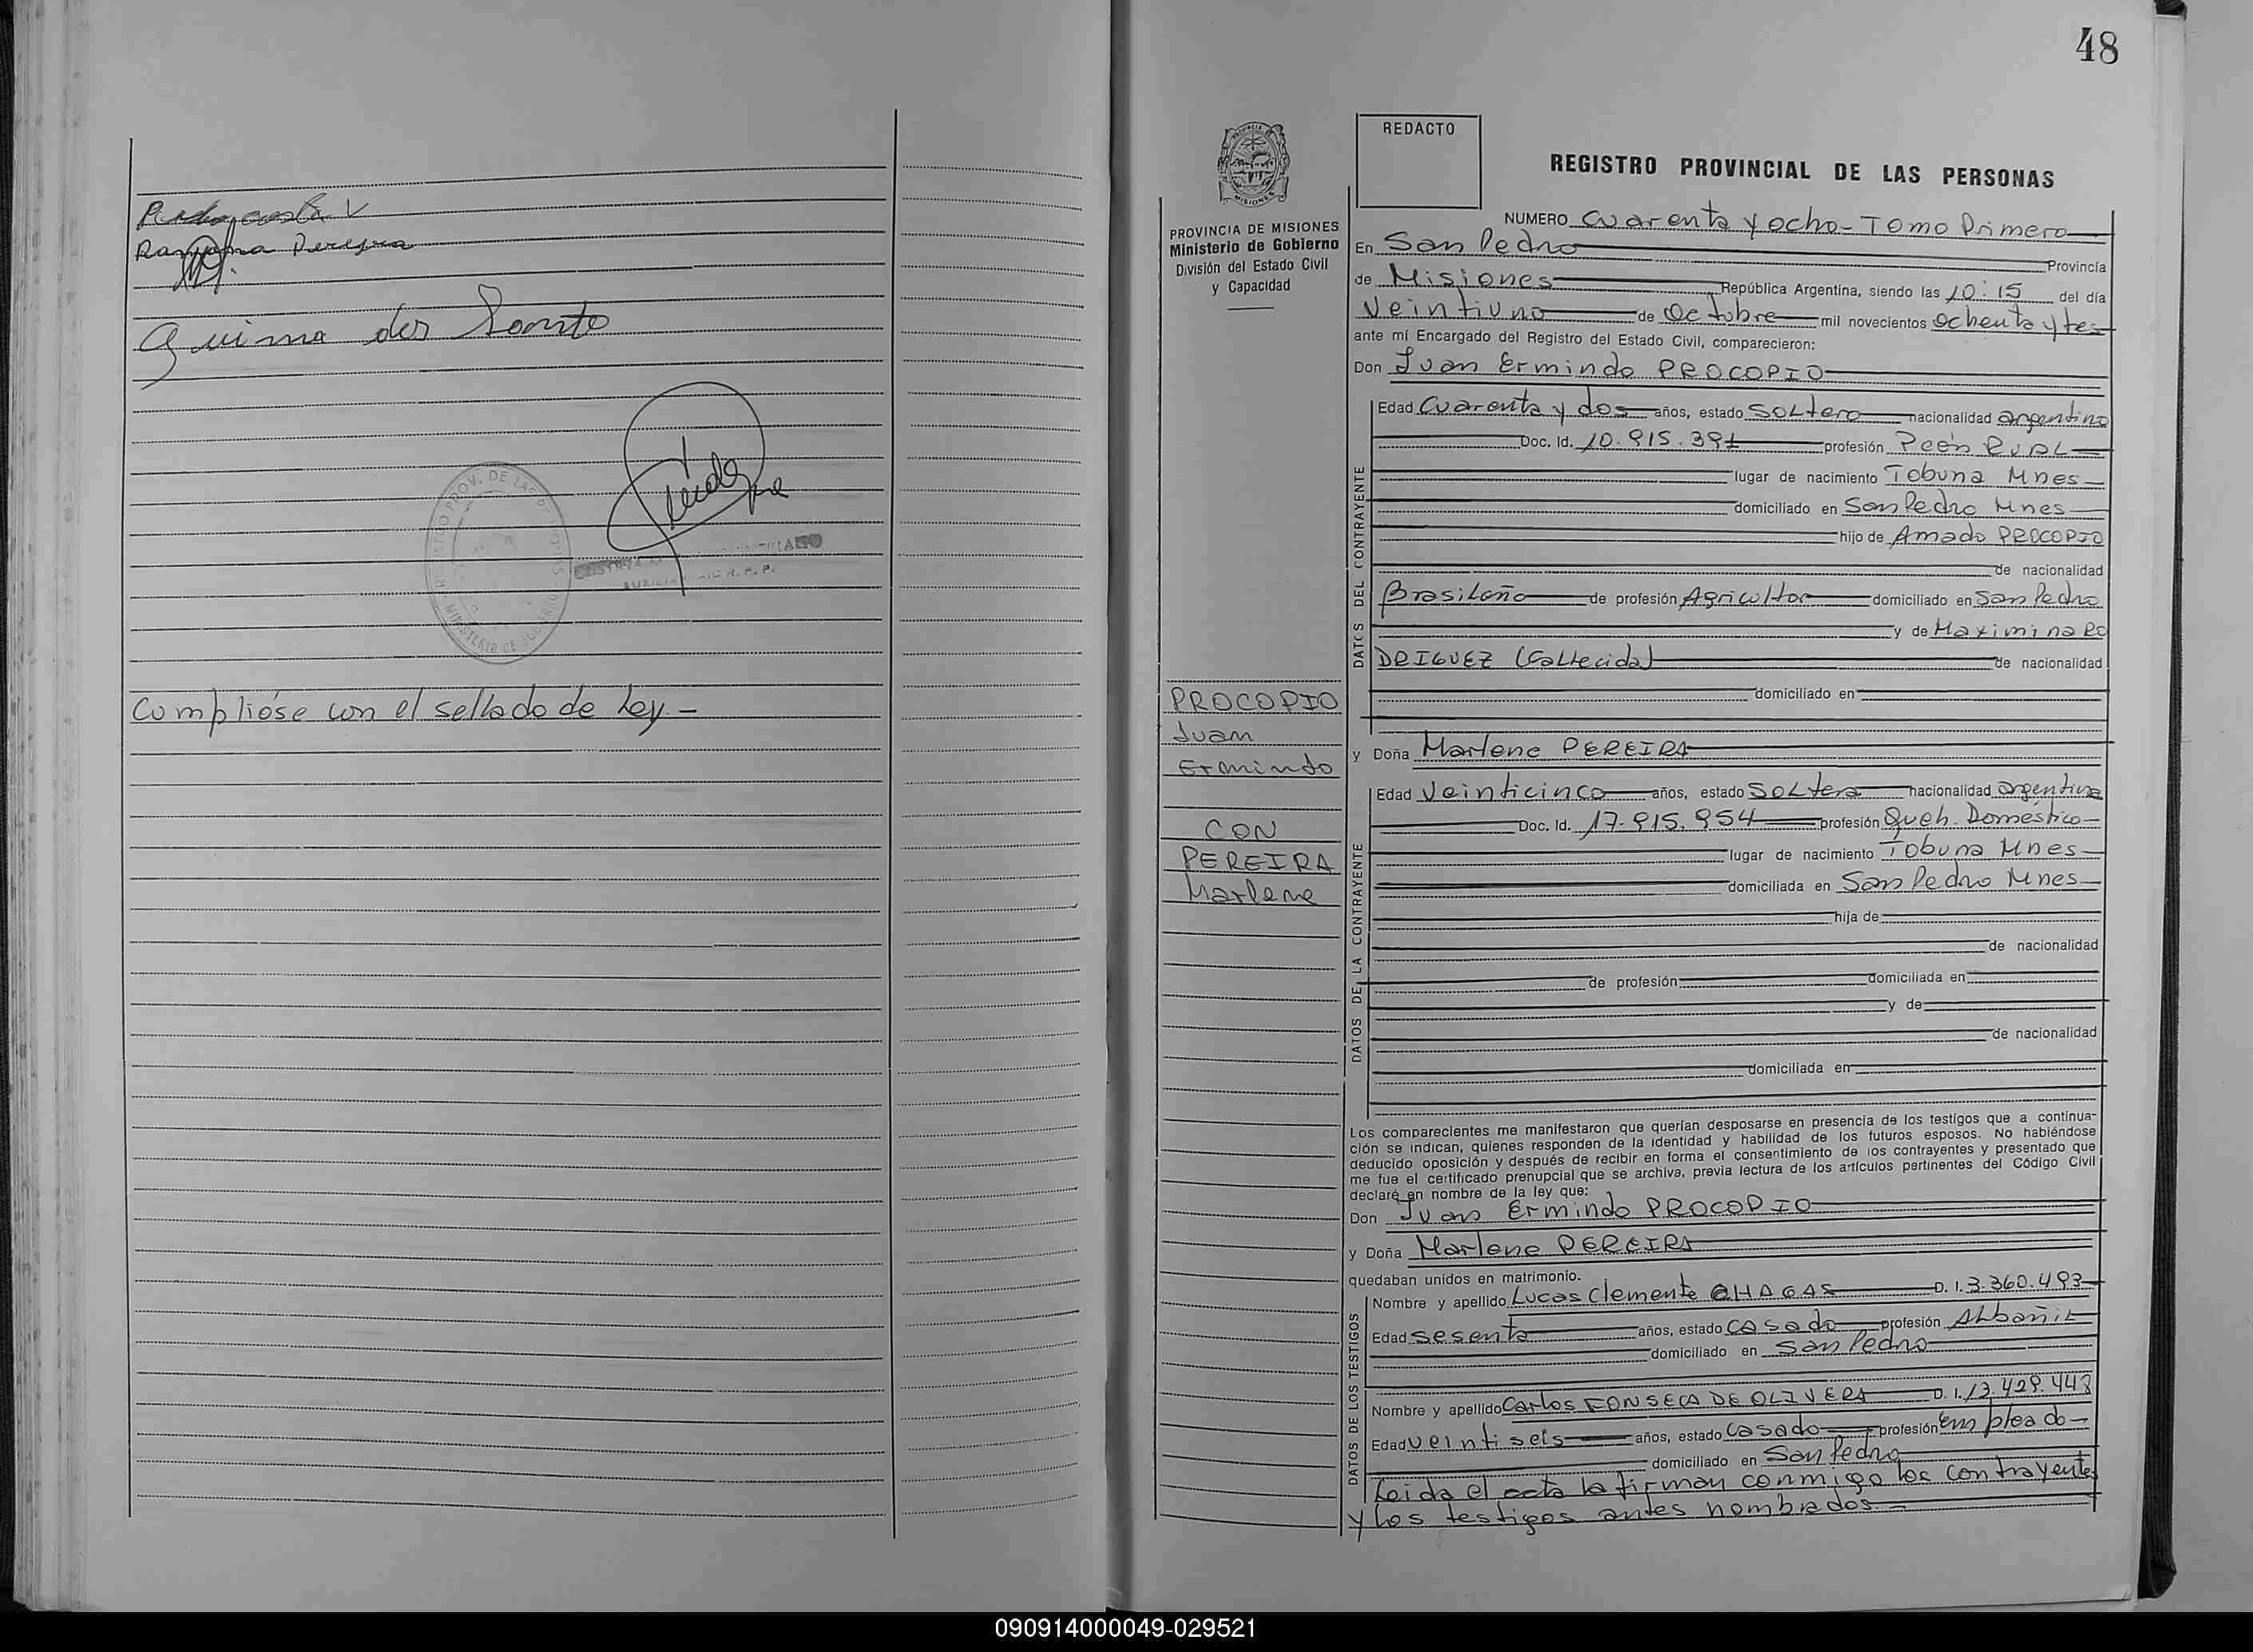 Ramona Pereyra
Cumplióse con el sellado de Ley.-
48
REDACTO
REGISTRO PROVINCIAL DE LAS PERSONAS
PROVINCIA DE MISIONES
Ministerio de Gobierno
División del Estado Civil
y Capacidad
NUMERO Cuarenta y ocho- Tomo Primero
En San Pedro Provincia
de Misiones República Argentina, siendo las 10:15 del día
Veintiuno de Octubre mil novecientos Ochenta y tes
ante mí Encargado del Registro del Estado Civil, comparecieron:
Don Juan Ermindo PROCOPIO
DATOS DEL CONTRAYENTE
Edad Cuarenta y dos años, estado Soltero nacionalidad argentino
Doc. Id. 10.915.391 profesión Peón Rural
lugar de nacimiento Tobuna Mnes
domiciliado en San Pedro Mnes
hijo de Amado PROCOPIO
de nacionalidad
Brasileño de profesión Agricultor domiciliado en San Pedro
y de Maximina RO
DRIGUEZ (Fallecida) de nacionalidad
domiciliado en
PROCOPIO
Juan
Ermindo
CON
PEREIRA
Marlene
y Doña Marlene PEREIRA
DATOS DE LA CONTRAYENTE
Edad Veinticinco años, estado Soltera nacionalidad argentina
Doc. Id. 17.915.954 profesión Queh. Doméstico
lugar de nacimiento Tobuna Mnes
domiciliada en San Pedro Mnes
hija de
de nacionalidad
de profesión domiciliada en
y de
de nacionalidad
domiciliada en
Los comparecientes me manifestaron que querían desposarse en presencia de los testigos que a continua-
ción se indican, quienes responden de la identidad y habilidad de los futuros esposos. No habiéndose
deducido oposición y después de recibir en forma el consentimiento de los contrayentes y presentado que
me fue el certificado prenupcial que se archiva, previa lectura de los artículos pertinentes del Código Civil
declaré en nombre de la ley que:
Don Juan Ermindo PROCOPIO
y Doña Marlene PEREIRA
quedaban unidos en matrimonio.
DATOS DE LOS TESTIGOS
Nombre y apellido Lucas Clemente CHAGAS D. I. 3.360.493
Edad sesenta años, estado casado profesión Albañil
domiciliado en San Pedro
Nombre y apellido Carlos FONSECA DE OLIVERA D. I. 13.429.448
Edad veintiseis años, estado casado profesión empleado-
domiciliado en San Pedro
Leida el acta la firman conmigo los contrayentes
y los testigos antes nombrados.-
090914000049-029521